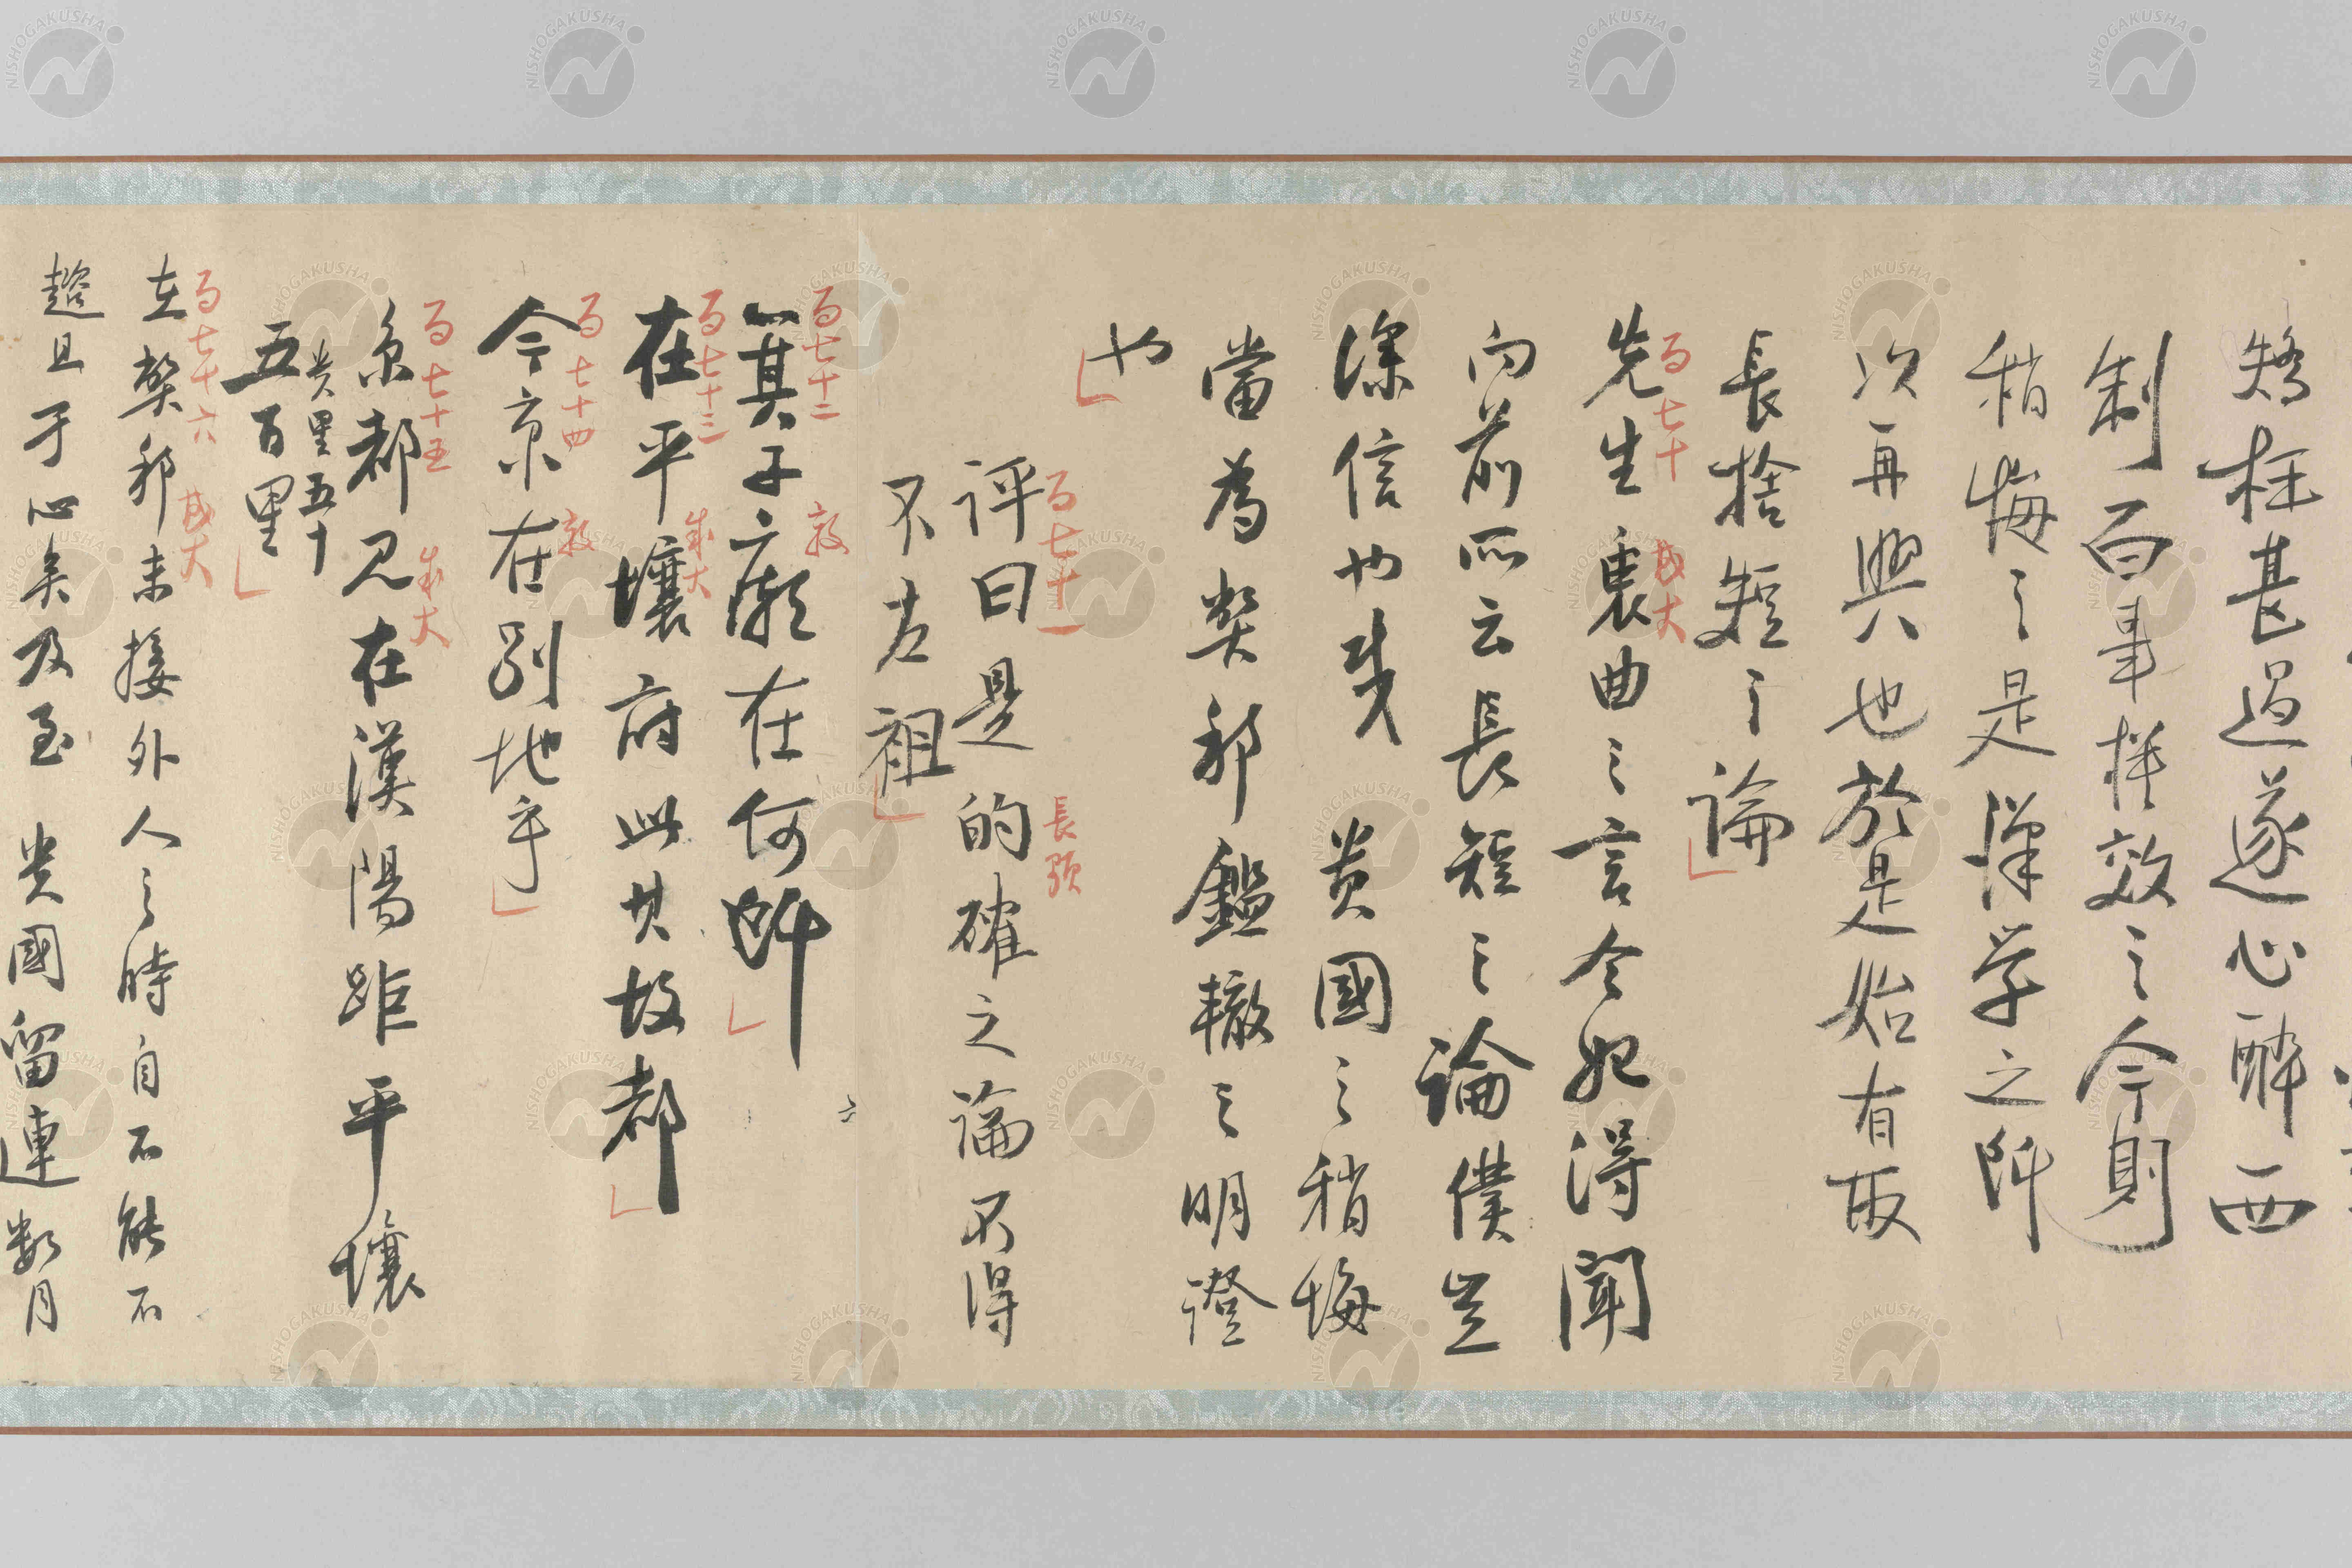 矯枉甚過遂心醉西
制百事摸效之今則
稍悔之是漢学之所
以再興也於是始有取
長捨短之論
百七十 成大
先生衷曲之言今始得聞
向前所云長短之論僕豈
深信也哉 貴國之稍悔
當為弊邦鑑轍之明證
也
百七十一 長驅
評曰是的確之論不得
不左袒
百七十二 毅
箕子廟在何所
百七十三 成大
在平壤府此其故都
百七十四 毅
今京在別地乎
百七十五 成大
京都見在漢陽距平壤
貴里五十
五百里
百七十六 成大
在弊邦未接外人之時自不能不
趦且于心矣及至 貴國留連數月
NISHOGAKUSHA